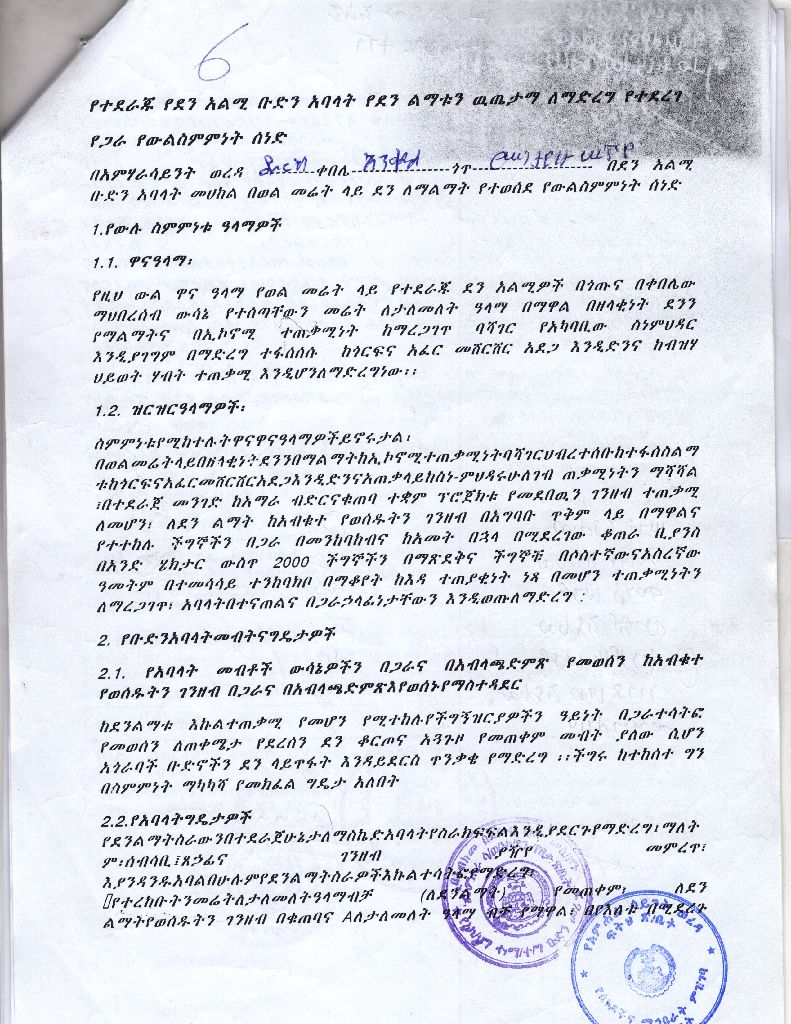 6
የተደራጁ የደን አልሚ ቡድን አባላት የደን ልማቱን ዉጤታማ ለማድረግ የተደረገ
የጋራ የውልስምምነት ሰነድ
በአምሃራሳይንት ወረዳ ቀበሌ ጎጥ በደን አልሚ
ቡድን አባላት መሀከል በወል መሬት ላይ ደን ለማልማት የተወሰደ የውልስምምነት ሰነድ
1.የውሉ ስምምነቱ ዓላማዎች
1.1. ዋናዓላማ፡
የዚህ ውል ዋና ዓላማ የወል መሬት ላይ የተደራጁ ደን አልሚዎች በጎጡና በቀበሌው
ማህበረሰብ ውሳኔ የተሰጣቸውን መሬት ለታለመለት ዓላማ በማዋል በዘላቂነት ደንን
የማልማትና በኢኮኖሚ ተጠቃሚነት ከማረጋገጥ ባሻገር የአካባቢው ስነምህዳር
እንዲያገግም በማድረግ ተፋሰሱ ከጎርፍና አፈር መሸርሸር አደጋ እንዲድንና ከብዝሃ
ህይወት ሃብት ተጠቃሚ እንዲሆንለማድረግነው፡፡
1.2. ዝርዝርዓላማዎች፡
ስምምነቱየሚከተሉትዋናዋናዓላማዎችይኖሩታል፡
በወልመሬትላይበዘላቂነትደንንበማልማትከኢኮኖሚተጠቃሚነትባሻገርህብረተሰቡከተፋሰስልማ
ቱከጎርፍናአፈርመሸርሸርአደጋእንዲድንናአጠቃላይከስነ-ምህዳሩሁለገብ ጠቃሚነትን ማሻሻል
፣በተደራጀ መንገድ ከአማራ ብድርናቁጠባ ተቋም ፕሮጀክቱ የመደበዉን ገንዘብ ተጠቃሚ
ለመሆን፣ ለደን ልማት ከአብቁተ የወሰዱትን ገንዘብ በአግባቡ ጥቅም ላይ በማዋልና
የተተከሉ ችግኞችን በጋራ በመንከባከብና ከአመት በኋላ በሚደረገው ቆጠራ ቢያንስ
በአንድ ሄክታር ውስጥ 2000 ችግኞችን በማጽደቅና ችግኞቹ በሶስተኛውናአስረኛው
ዓመትም በተመሳሳይ ተንከባክቦ በማቆየት ከእዳ ተጠያቂነት ነጻ በመሆን ተጠቃሚነትን
ለማረጋገጥ፣ አባላትበተናጠልና በጋራኃላፊነታቸውን እንዲወጡለማድረግ፡
2. የቡድንአባላትመብትናግዴታዎች
2.1. የአባላት መብቶች ውሳኔዎችን በጋራና በአብላጫድምጽ የመወሰን ከአብቁተ
የወሰዱትን ገንዘብ በጋራና በአብላጫድምጽእየወሰኑየማስተዳደር
ከደንልማቱ እኩልተጠቃሚ የመሆን የሚተከሉየችግኝዝርያዎችን ዓይነት በጋራተሳትፎ
የመወሰን ለጠቀሜታ የደረሰን ደን ቆርጦና አጓጉዞ የመጠቀም መብት ያለው ሲሆን
አጎራባች ቡድኖችን ደን ላይጥፋት እንዳይደርስ ጥንቃቄ የማድረግ ፡፡ችግሩ ከተከሰተ ግን
በስምምነት ማካካሻ የመክፈል ግዴታ አለበት
2.2.የአባላትግዴታዎች
የደንልማትስራውንበተደራጀሁኔታለማስኬድአባላትየስራክፍፍልእንዲያደርጉየማድረግ፣ማለት
ም፡ሰብሳቢ፣ጸኃፊና ገንዘብ ያዥየ መምረጥ፣
እያንዳንዱአባልበሁሉምየደንልማትስራዎችእኩልተሳትፎየማድረግ፣
የተረከቡትንመሬትለታለመለትዓላማብቻ (ለደንልማት) የመጠቀም፣ ለደን
ልማትየወሰዱትን ገንዘብ በቁጠባና Aለታለመለት ዓላማ ብቻ የማዋል፣ በየእለቱ በሚደረጉ